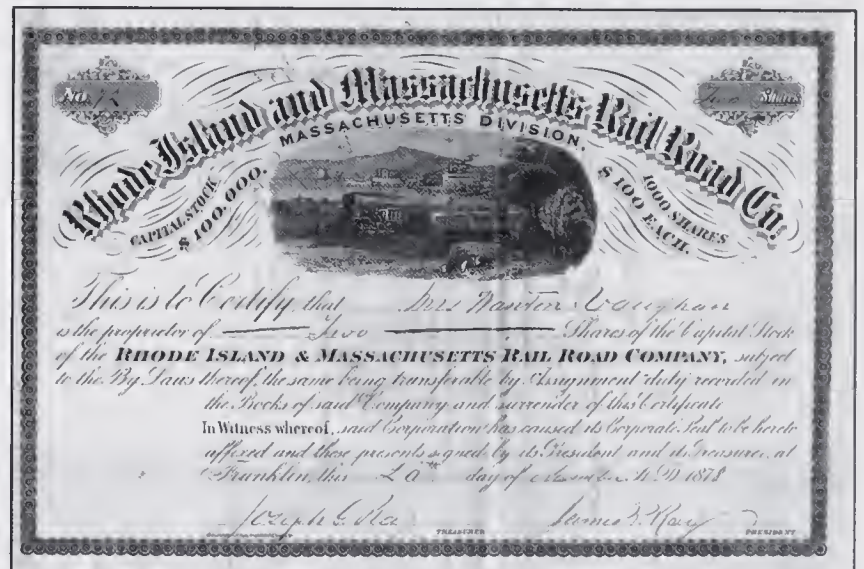 No.
Two Shares
Rhode Island and Massachusetts Rail Road Co.
MASSACHUSETTS DIVISION.
CAPITAL STOCK
$100,000.
1000 SHARES
$100 EACH.
This is to Certify, that Vaughan
is the proprietor of Two Shares of the Capital Stock
of the RHODE ISLAND & MASSACHUSETTS RAIL ROAD COMPANY, subject
to the By Laws thereof, the same being transferable by Assignment duly recorded in
the Books of said Company and surrender of this Certificate
In Witness whereof, said Corporation has caused its Corporate Seal to be hereto
affixed and these presents signed by its President and its Treasurer, at
Franklin, this day of A.D. 1878
Joseph G. Ray
James P. Ray
TREASURER
PRESIDENT